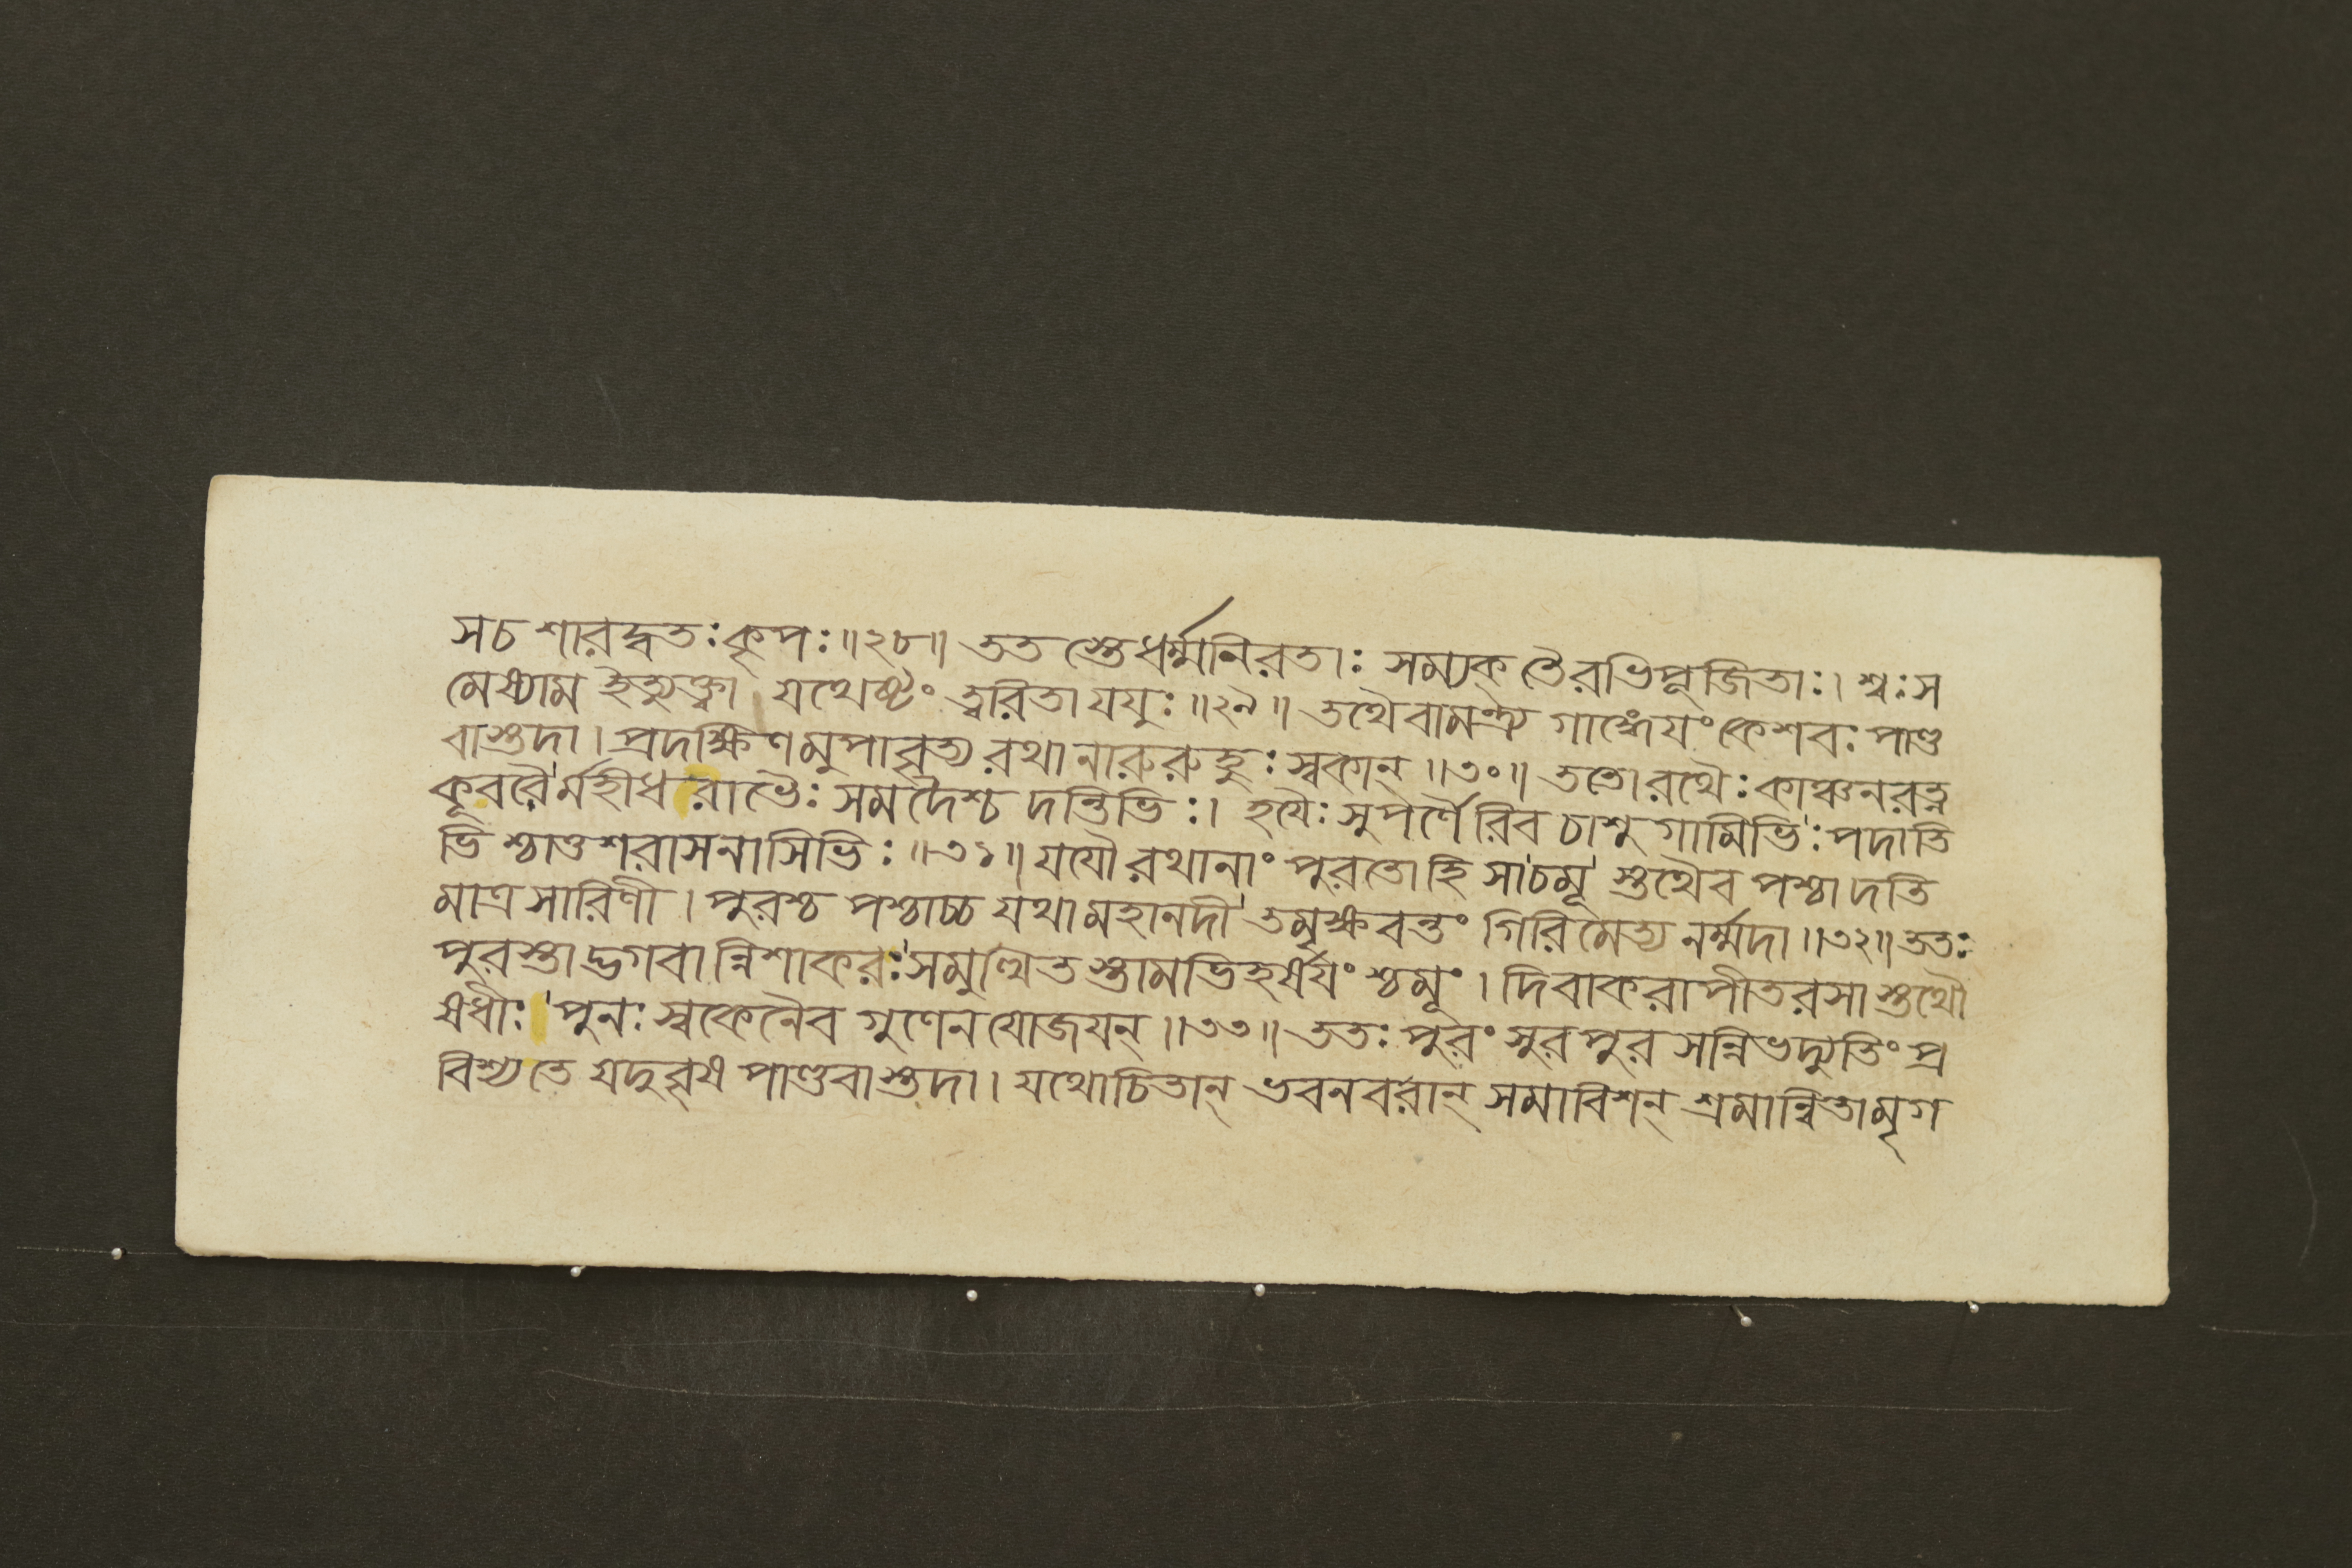 স চ শারদ্বতঃ কৃপঃ॥২৮॥ ততস্তে ধর্ম্মনিরতাঃ সম্যক্ তৈরভিপূজিতাঃ। শ্বঃ স
মেষ্যাম ইত্যুক্ত্বা যথেষ্টং ত্বরিতা যযুঃ॥২৯॥ তথৈবামন্ত্র্য গাঙ্গেয়ং কেশবঃ পাণ্ড
বাস্তদা। প্রদক্ষিণমুপাবৃত্য রথানারুরুহুঃ স্বকান্॥৩০॥ ততো রথৈঃ কাঞ্চনরত্ন
কূবরৈর্মহীধরাভৈঃ সমদৈশ্চ দন্তিভিঃ। হযৈঃ সুপর্ণৈরিব চাশুগামিভিঃ পদাতি
ভিশ্চাত্তশরাসনাসিভিঃ॥৩১॥ যযৌ রথানাং পুরতো হি সা চমূস্তথৈব পশ্চাদতি
মাত্রসারিণী। পুরশ্চ পশ্চাচ্চ যথা মহানদী তমৃক্ষবন্তং গিরিমেত্য নর্ম্মদা॥৩২॥ ততঃ
পুরস্তাদ্ভগবান্নিশাকরঃ সমুত্থিতস্তামভিহর্ষযংশ্চমূং। দিবাকরাপীতরসাস্তথৌ
ষধীঃ পুনঃ স্বকেনৈব গুণেন যোজযন্॥৩৩॥ ততঃ পুরং সুরপুরসন্নিভদ্যুতিং প্র
বিশ্য তে যদুবৃষপাণ্ডবাস্তদা। যথোচিতান্ ভবনবরান্ সমাবিশন্ শ্রমান্বিতা মৃগ